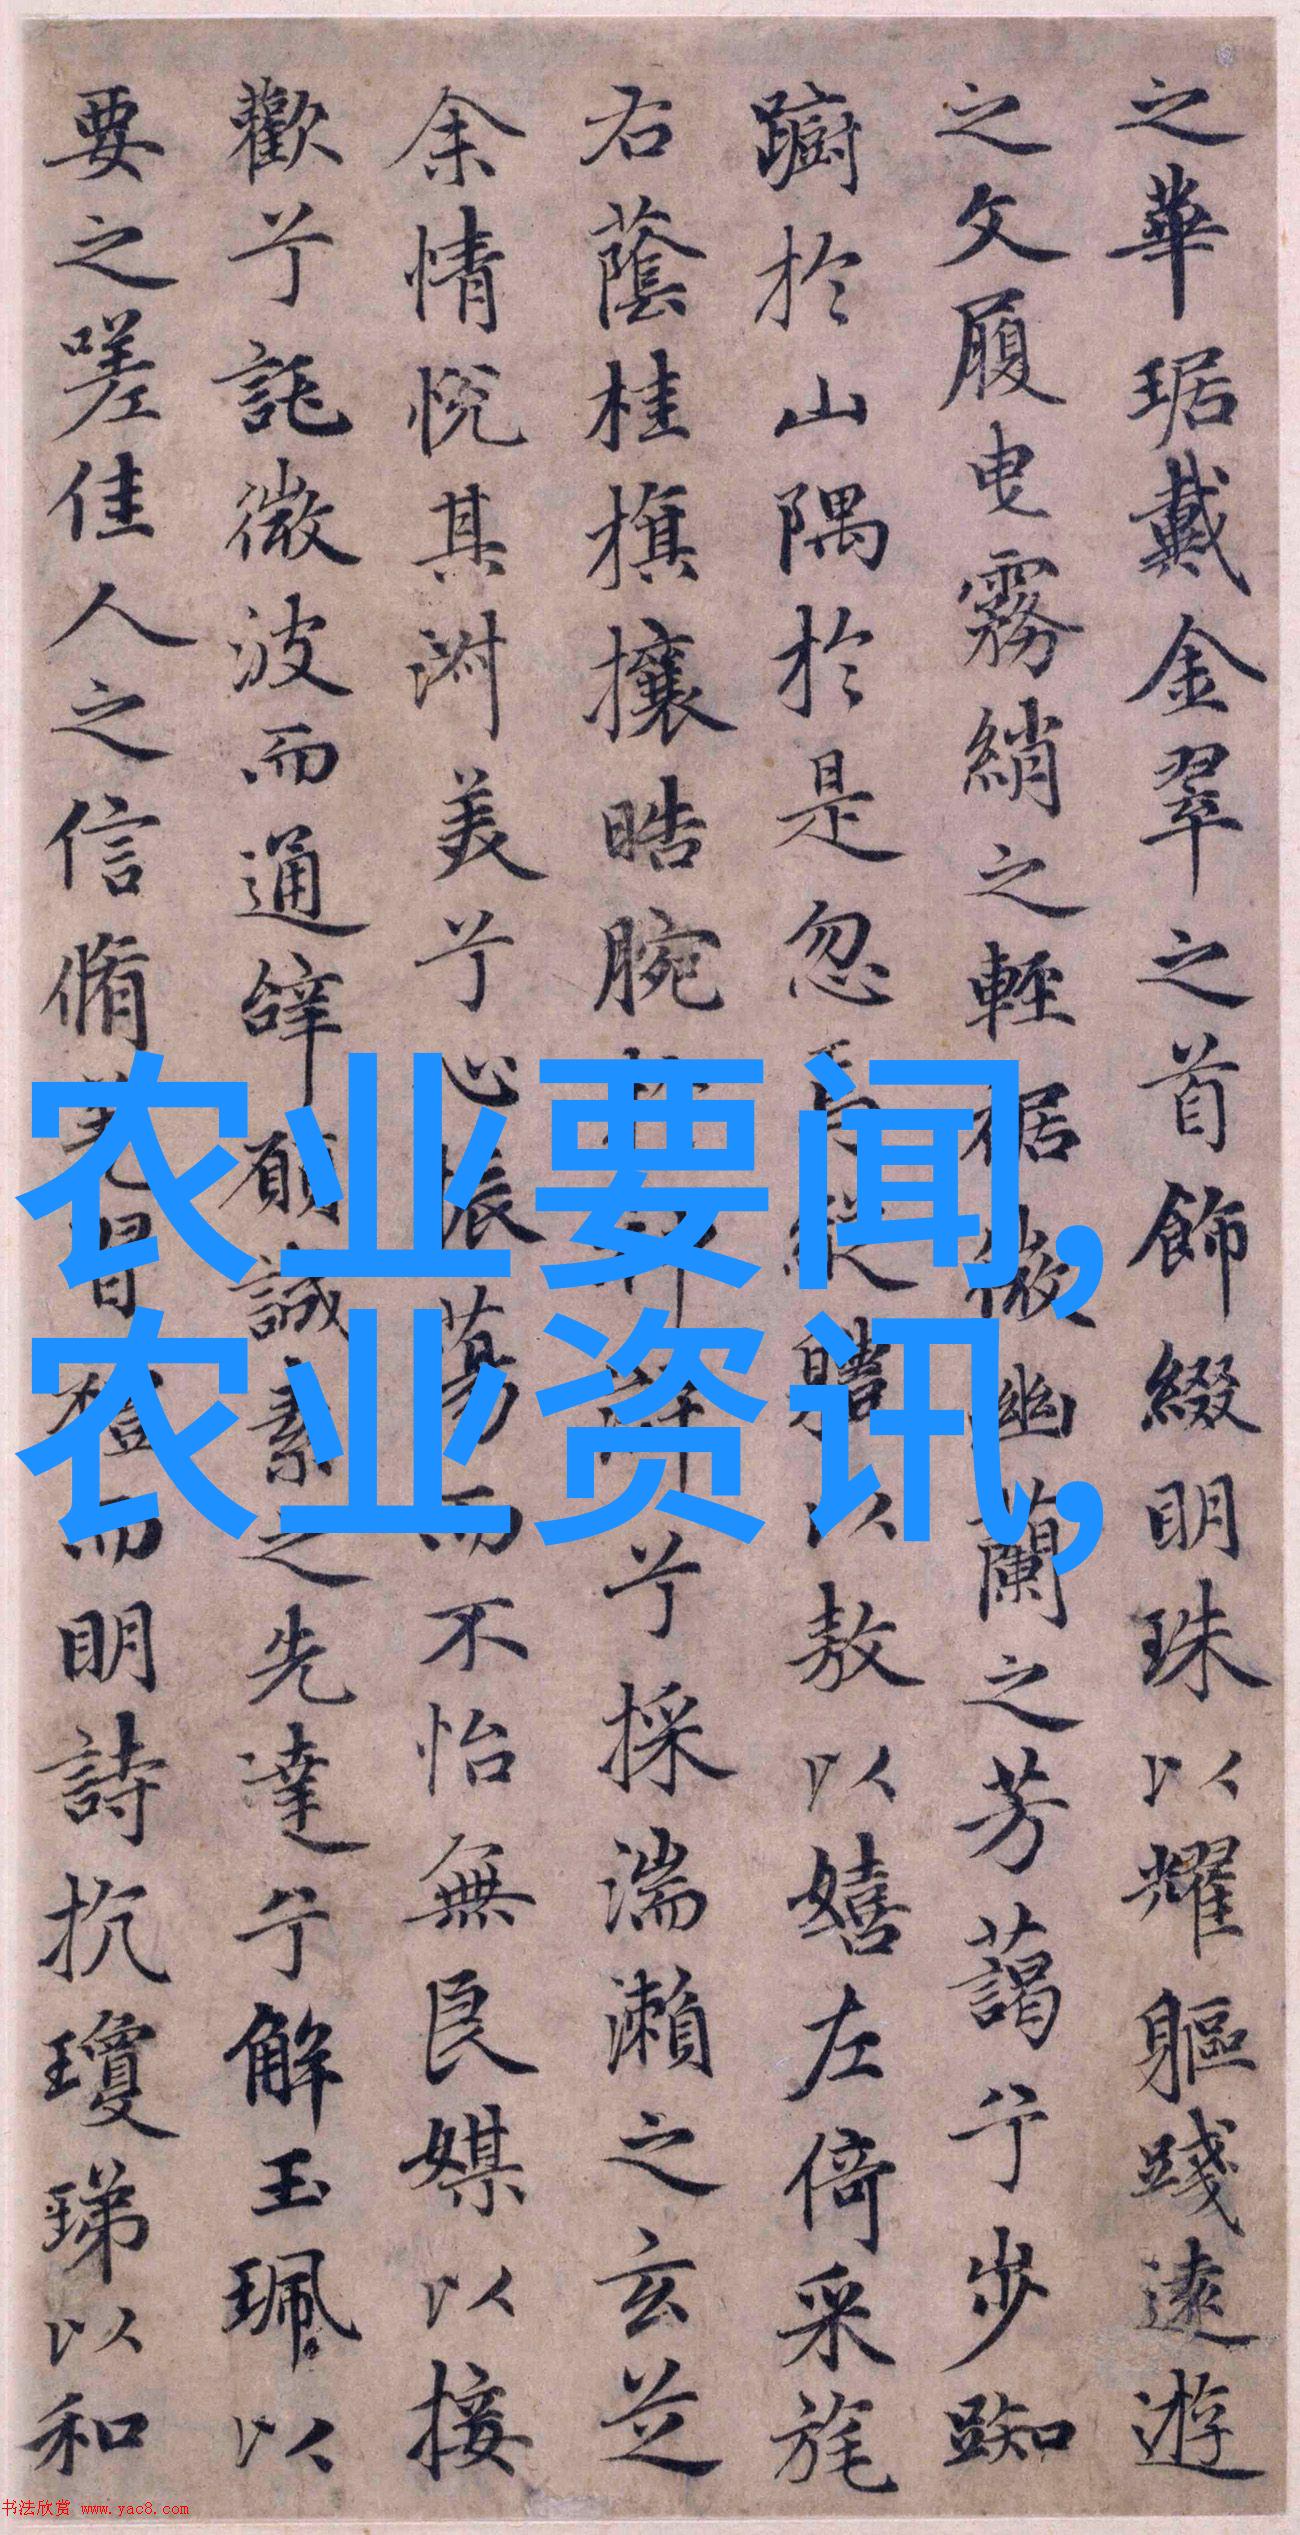 之華琚戴金翠之首飾綴明珠以耀軀踐遠遊
之文履曳霧綃之輕裾微幽蘭之芳藹兮步踟
躕於山隅於是忽焉縱體以敖以嬉左倚采旄
右蔭桂旗攘皓腕於神滸兮採湍瀨之玄芝
余情悅其淑美兮心振蕩而不怡無良媒以接
歡兮託微波而通辭願誠素之先達兮解玉珮以
要之嗟佳人之信脩羌習禮而明詩抗瓊珶以和
农业要闻,
农业资讯,
书法欣赏 www.yac8.com